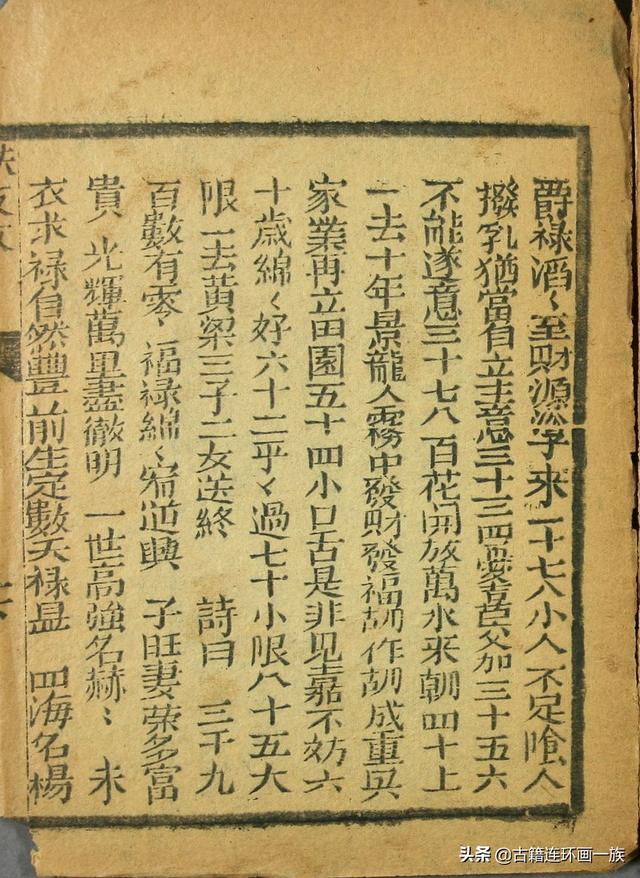 爵禄滔〻至財源滚子來二十七八小人不足陰人
撥乳猶當自立主意三十三四憂喜交加三十五六
不能遂意三十七八百花開放萬水来朝四十上
一去十年景龍入霧中發財發福胡作胡成重興
家業再立田園五十四小口舌是非见喜不妨六
十歲綿〻好六十二乎〻過七十小限八十五大
限一去黄梁三子二女送終 詩曰 三千九
百數有零〻福禄綿〻家道興 子旺妻荣多富
貴 光輝萬里盡徹明 一世高強名赫〻 未
衣求禄自然豐前生定數天禄显 四海名楊
头条 @古籍连环画一族